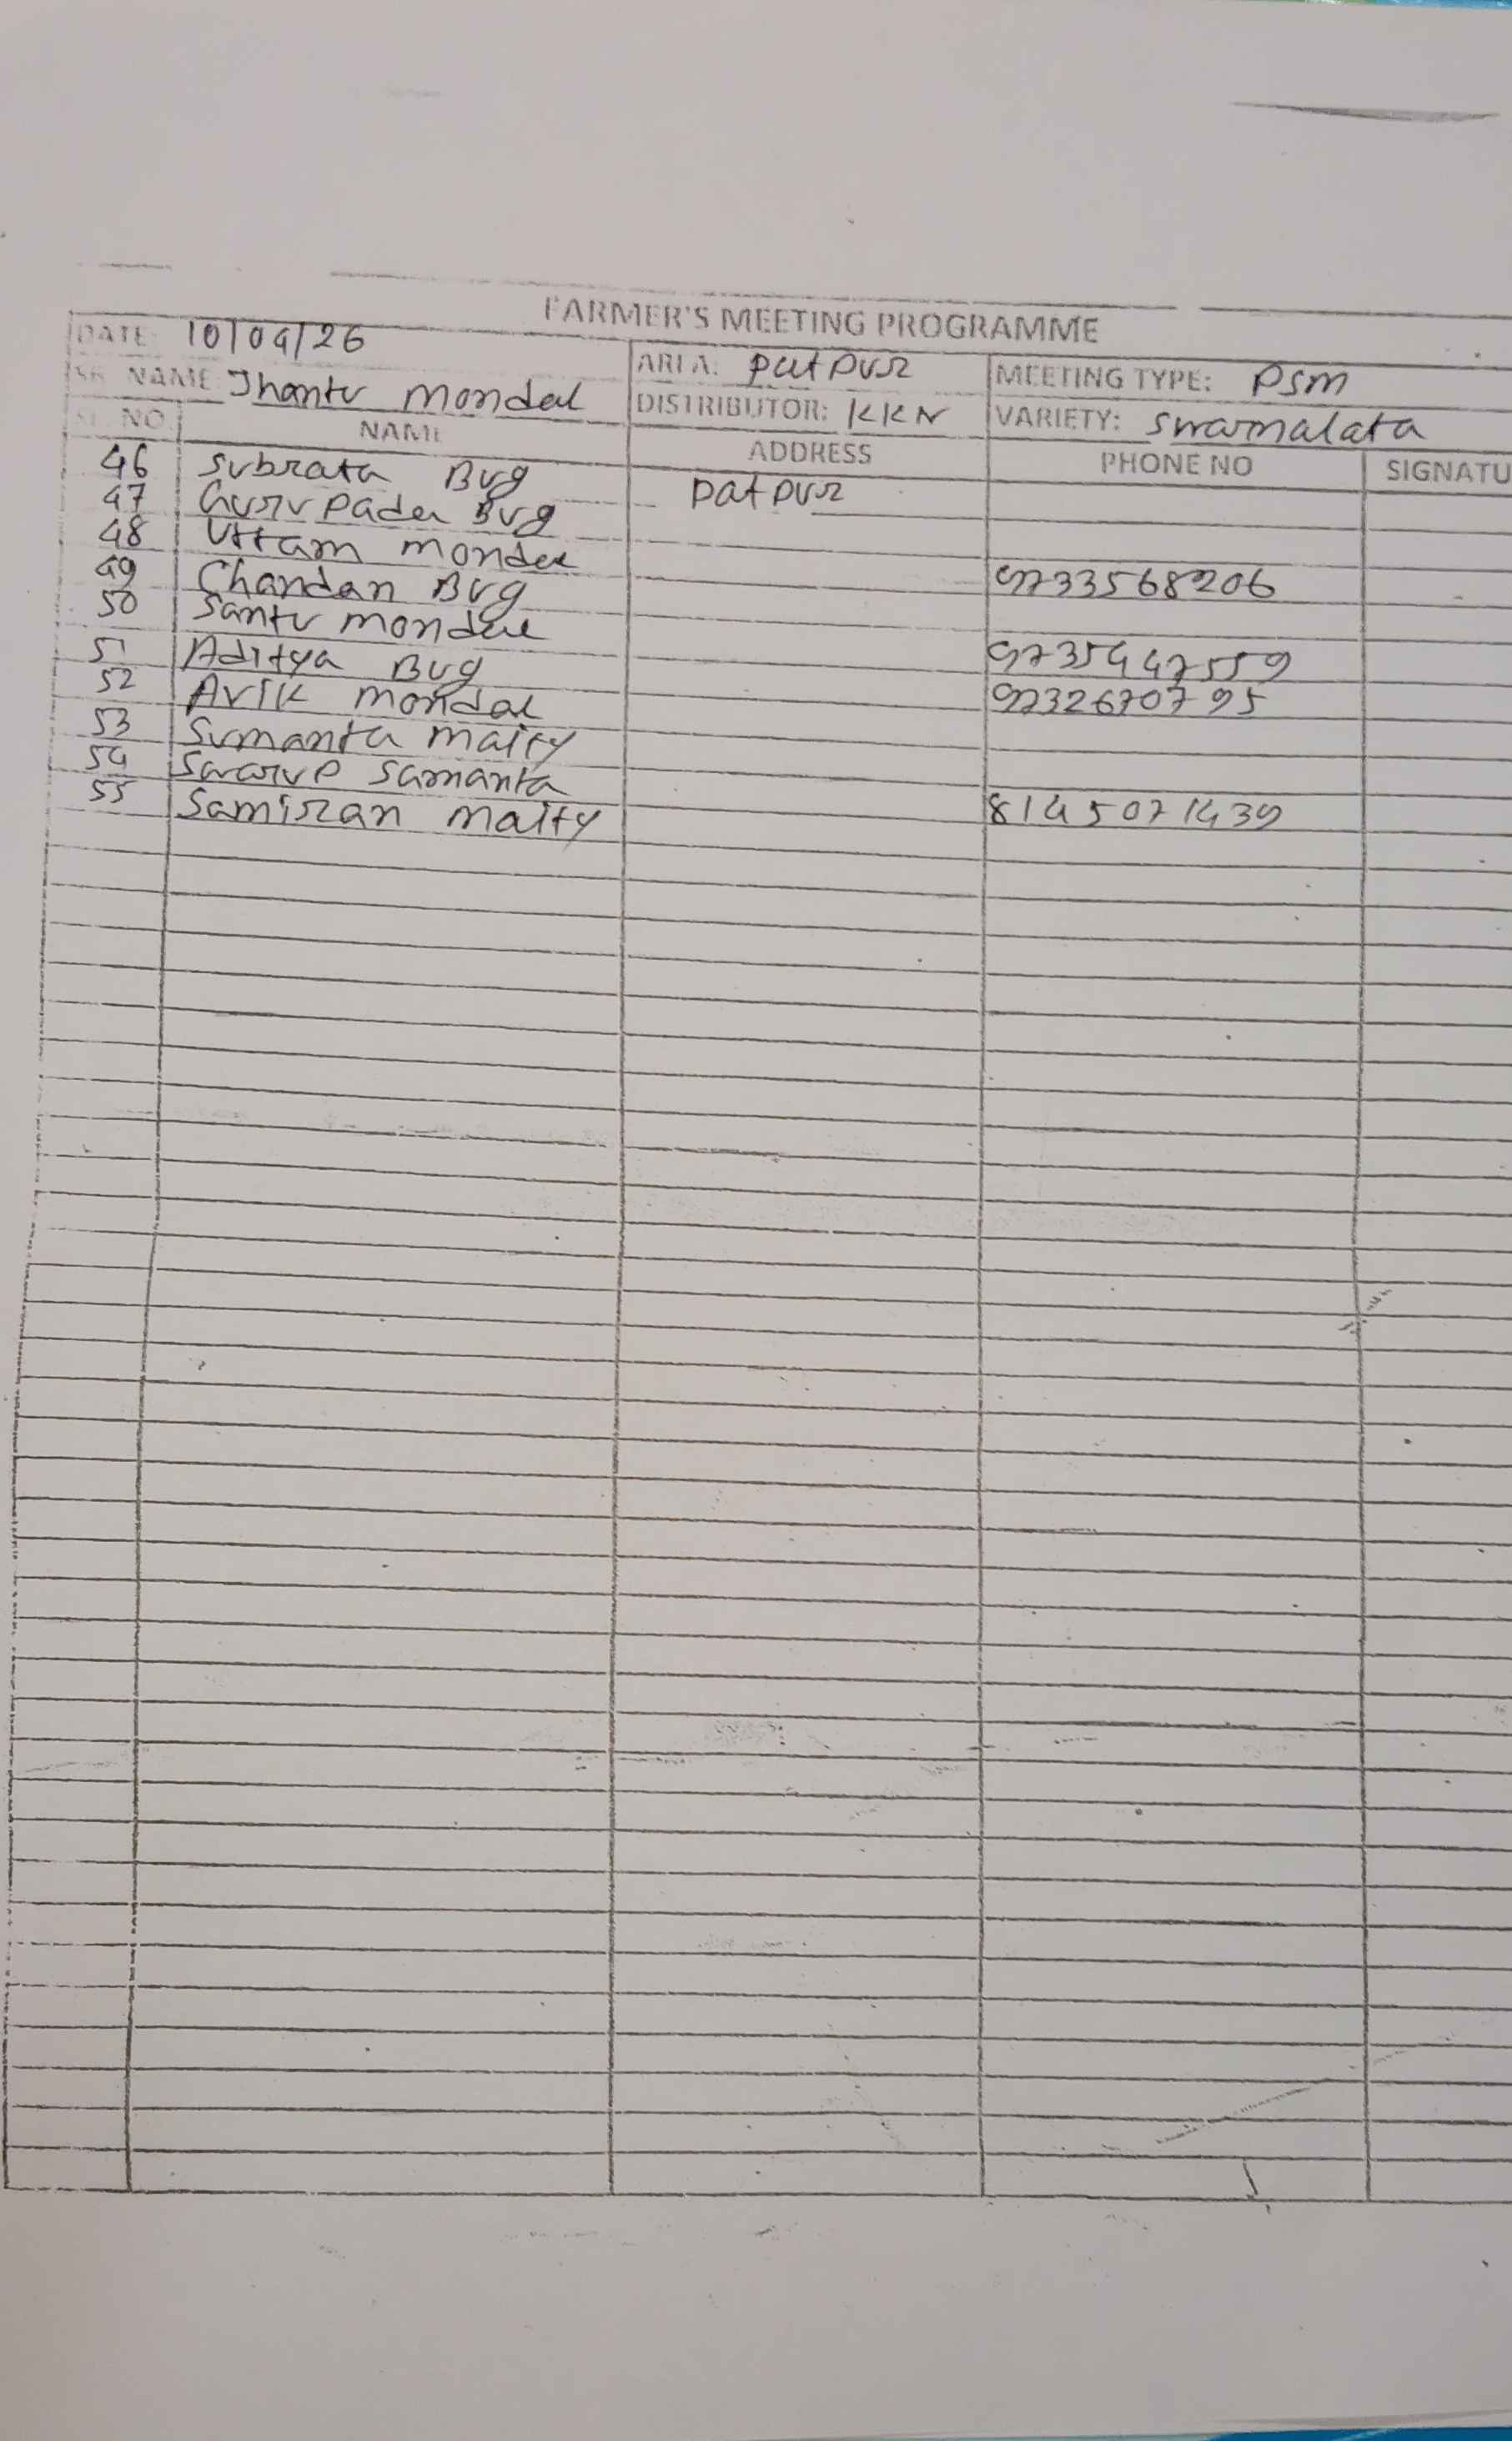 FARMER'S MEETING PROGRAMME
DATE: 10/04/26
AREA: patpur MEETING TYPE: PSM
SR. NAME: Jhantu Mondal DISTRIBUTOR: KKN VARIETY: Swarnalata
SL. NO. NAME ADDRESS PHONE NO SIGNATU
46 Subrata Bug patpur
47 Gurupada Bug
48 Uttam mondal
49 Chandan Bug 9733568206
50 Santu mondal
51 Aditya Bug 9735447559
52 Avik mondal 9732670795
53 Sumanta maity
54 Swarup Samanta
55 Samiran maity 8145071439